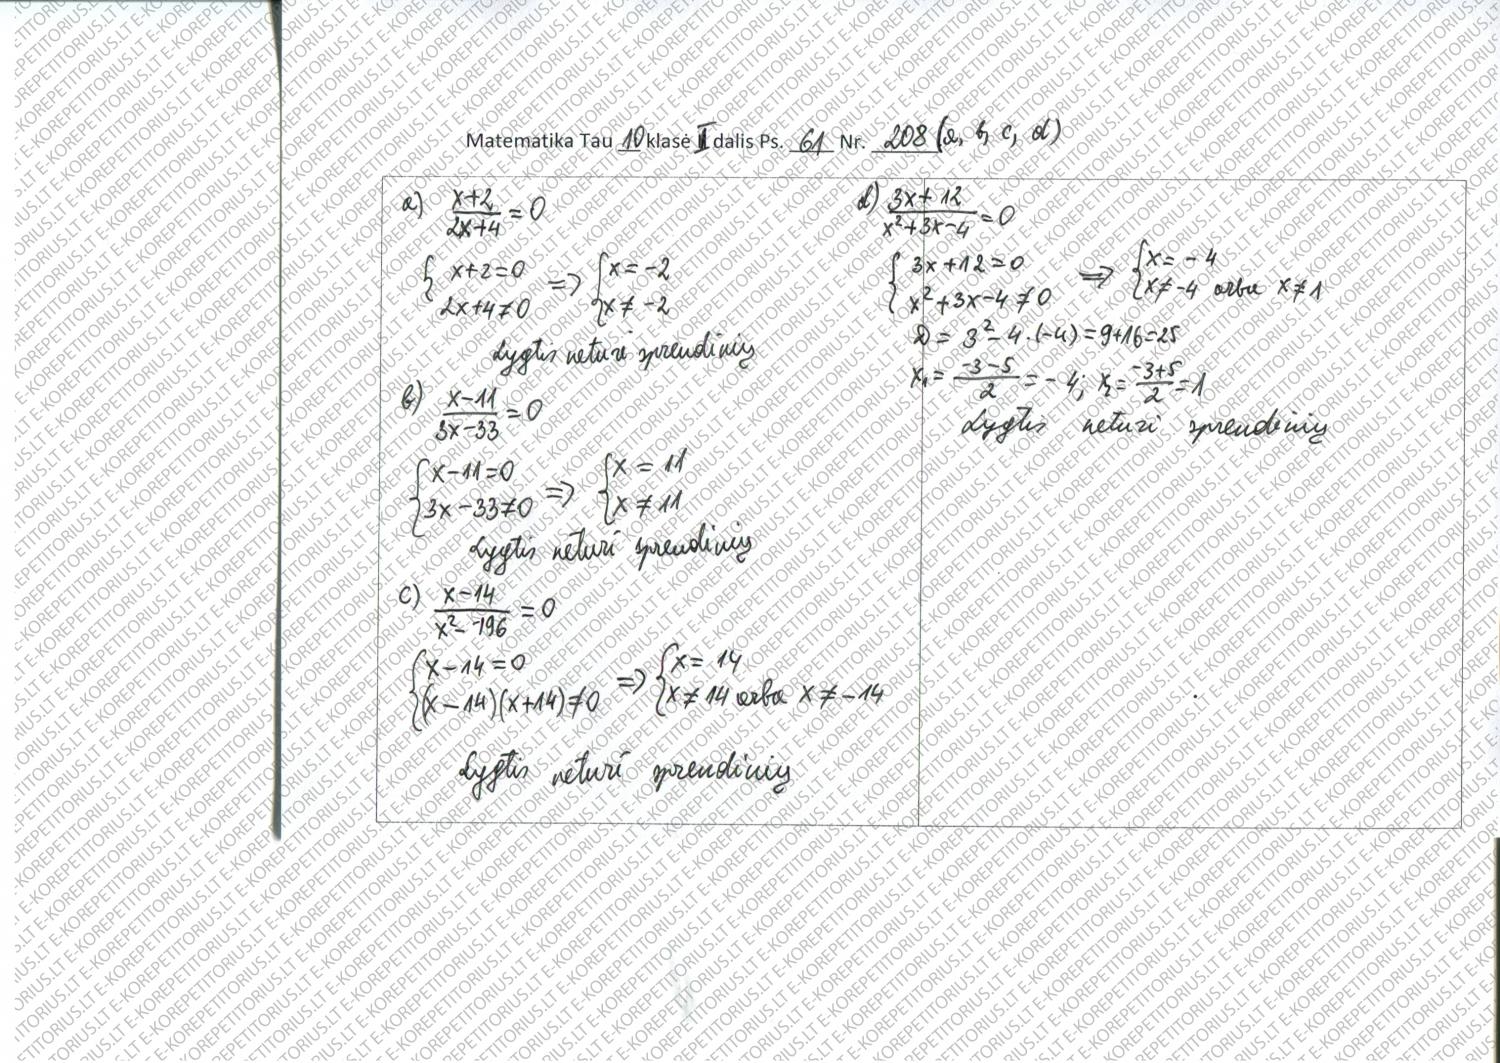 Matematika Tau 10 klasė II dalis Ps. 61 Nr. 208 (a, b, c, d)
a) x+2/2x+4 = 0
{ x+2=0 => { x = -2
2x+4≠0 x ≠ -2
Lygtis neturi sprendinių
b) x-11/3x-33 = 0
{ x-11=0 => { x = 11
3x-33≠0 x ≠ 11
Lygtis neturi sprendinių
c) x-14/x²-196 = 0
{ x-14=0 => { x = 14
(x-14)(x+14)≠0 x ≠ 14 arba x ≠ -14
Lygtis neturi sprendinių
d) 3x+12/x²+3x-4 = 0
{ 3x+12=0 => { x = -4
x²+3x-4≠0 x≠-4 arba x≠1
D = 3²-4·(-4)=9+16=25
x₁= -3-5/2 = -4; x₂= -3+5/2 =1
Lygtis neturi sprendinių
E-KOREPETITORIUS.LT